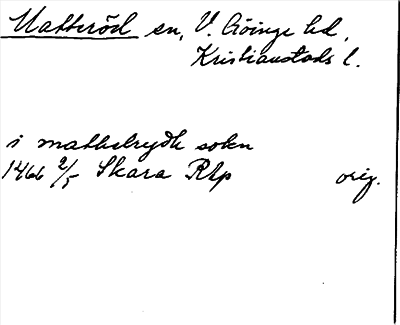 Matteröd en, V. Göinge hd,
Kristianstads l.
i mattetrydh sokn
1466 2/5 Skara Rsp orig.